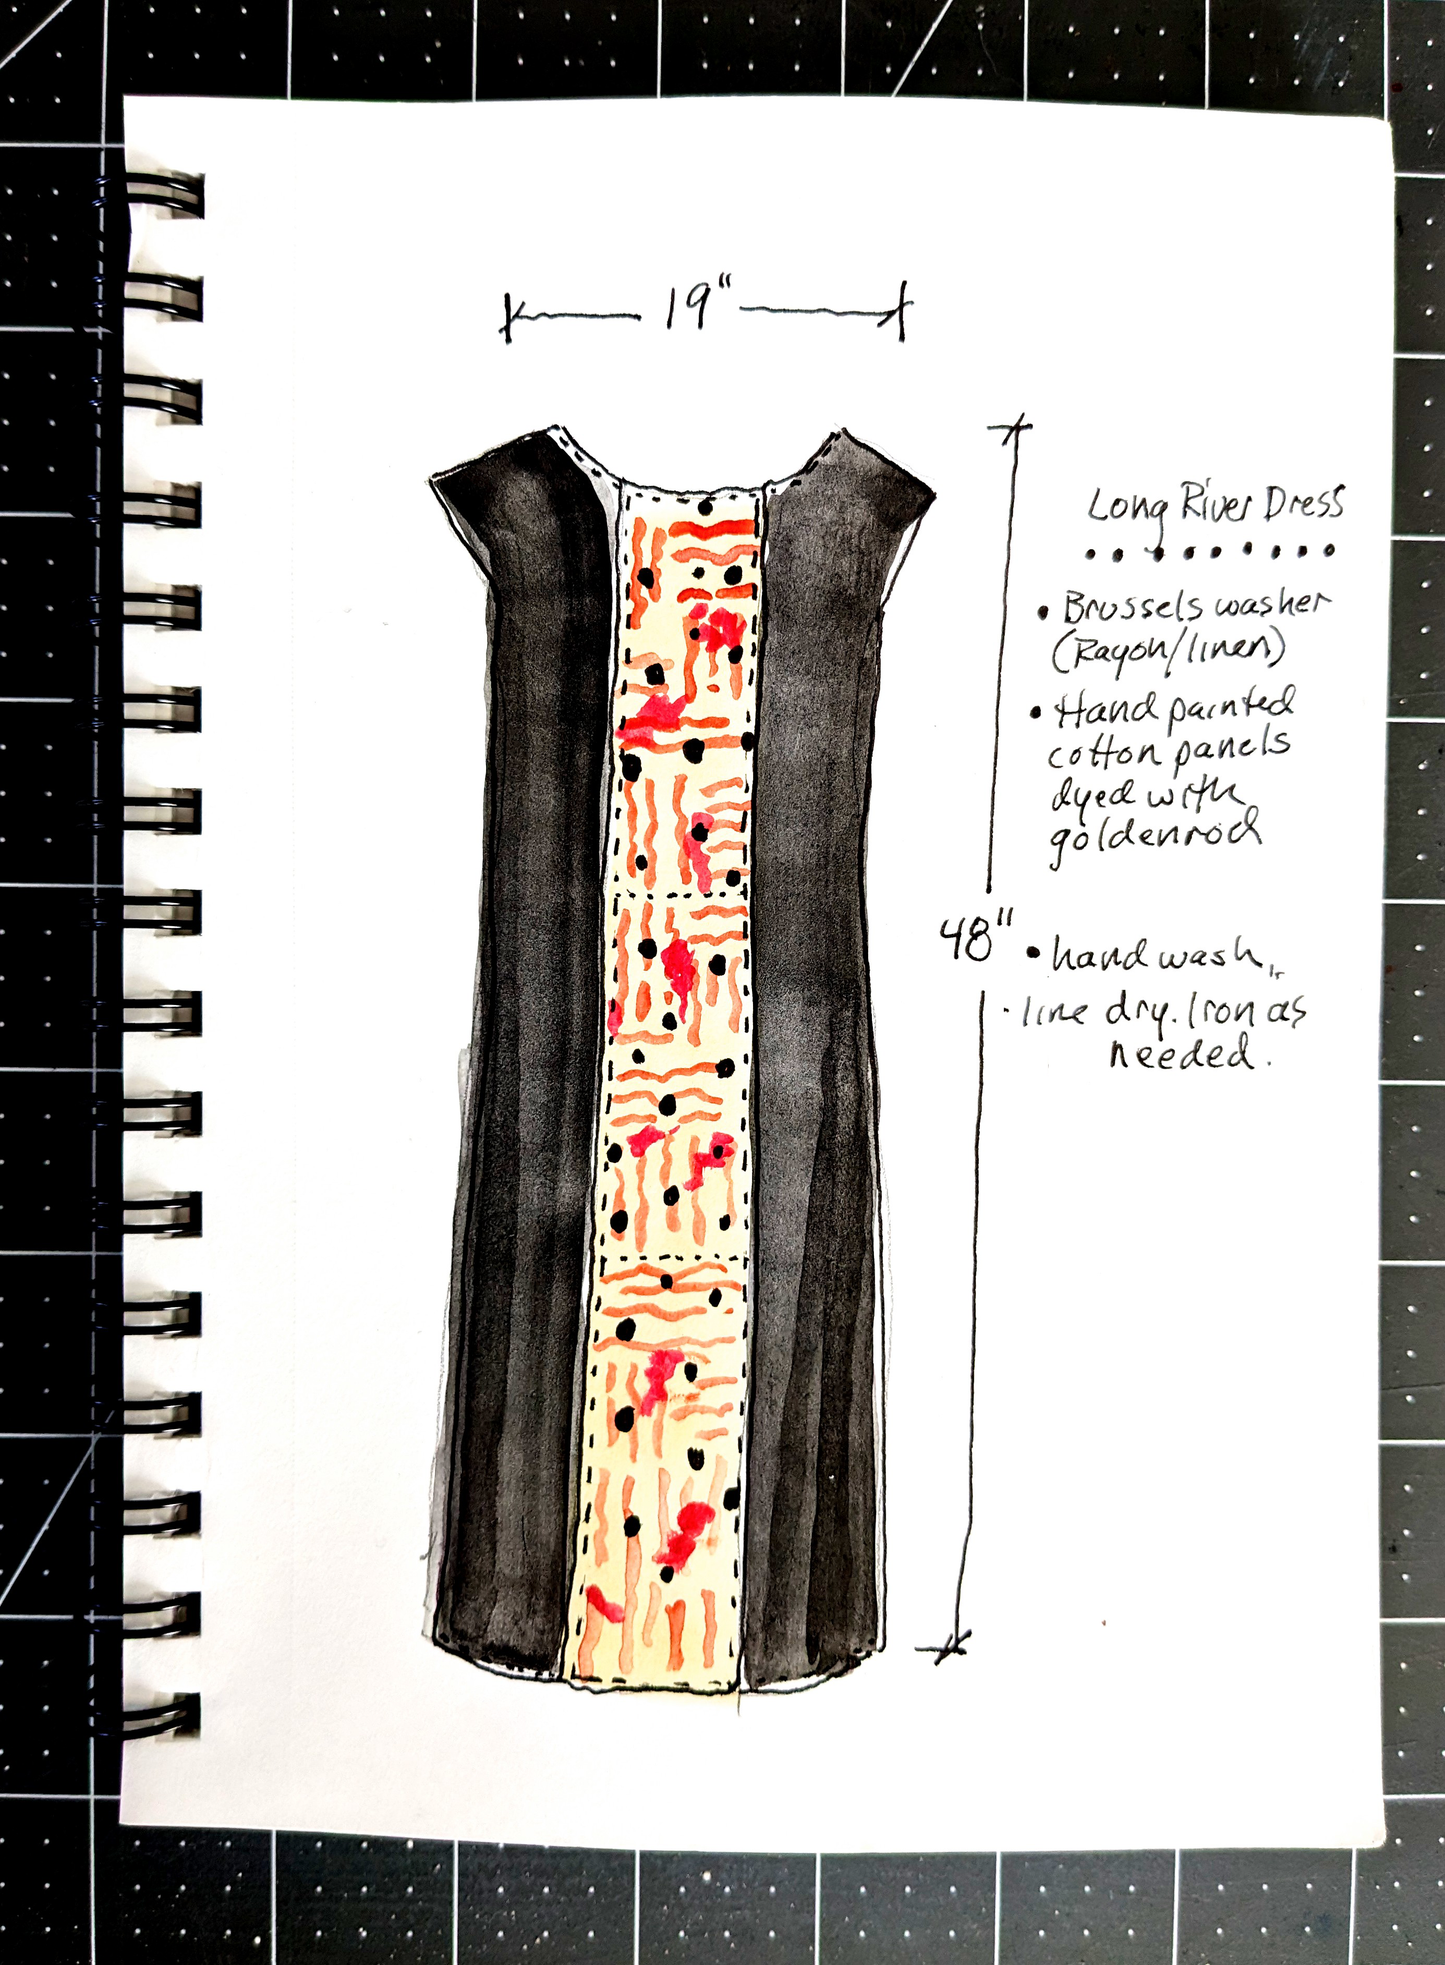 19"
Long River Dress
• Brussels washer
(Rayon/linen)
• Hand painted
cotton panels
dyed with
goldenrod
48"
• hand wash,
· line dry. Iron as
needed.